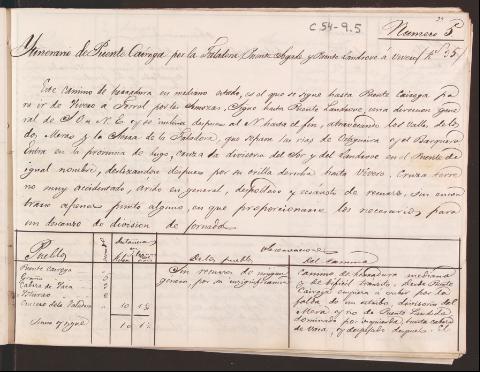 C.54-9.5
Numero 5º
Ytinerario de Puente Cairoga por la Faladoira Puente Segade y Puente Landrove á Vivero
Este camino de herradura en mediano estado, es el que se sigue hasta Puente Cairoga pa
ra ir de Vivero á Ferrol por las Somozas. Sigue hasta Puente Landrove, una direccion gene
ral de S.O. á N.E. y se inclina despues al N. hasta el fin, atravesando los valles de
Mera y la Sierra de la Faladoira, que separa las rias de Ortigueira y el Barquero
Entra en la provincia de Lugo, cruza la divisoria del Sor y del Landrove en el Puente de
igual nombre, deslizandose despues por su orilla derecha hasta Vivero. Cruza terre
no muy accidentado, árido en general, despoblado y escaso de recursos, sin encon
trarse apenas punto alguno, en que proporcionarse los necesarios para
un descanso de division de jornada.
Pueblos
Distancias
Observaciones
De los pueblos
Del camino
Puente Cairoga
Sin recursos de ningun
genero, por su insignificancia
Camino de herradura mediano
y de dificil transito, desde Puente
Cairoga empieza á subir por la
falda de un estribo, divisoria del
Mera y rio de Puente
dominado por izquierda, hasta Cabeza
de Vaca, y despejado despues. El
Cabeza de Vaca
10
Suma y sigue
10